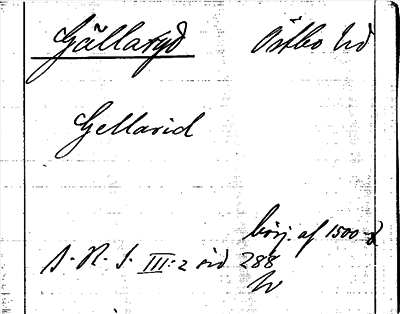 Gällaryd Östbo hd
Gellarid
börj. af 1500-t
S. R. S. III:2 sid 288